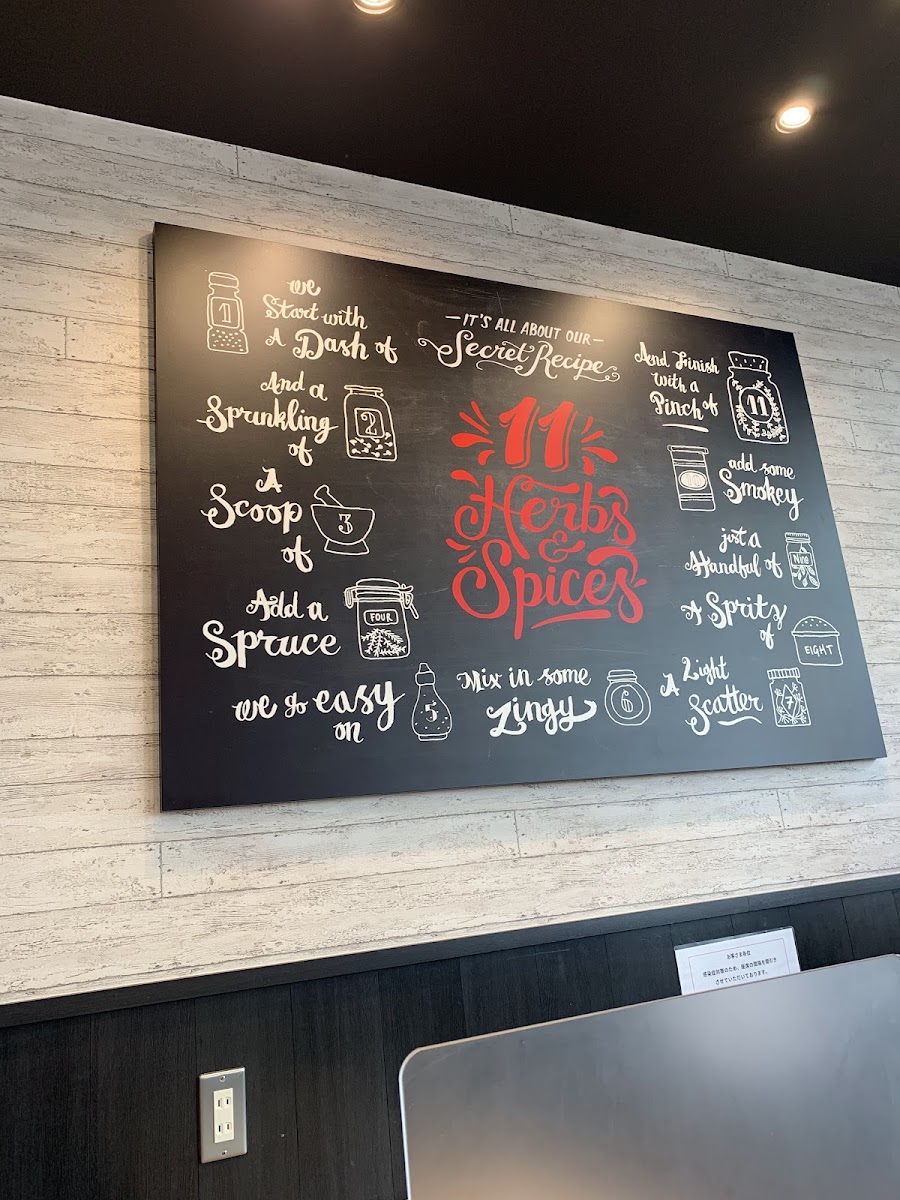 IT'S ALL ABOUT OUR
Secret Recipe
11
Herbs
&
Spices
1
we
Start with
A Dash of
And a
Sprinkling
of
2
A
Scoop
of
3
Add a
Spruce
FOUR
we go easy
on
5
Mix in some
Zingy
6
A Light
Scatter
7
A Spritz
of
EIGHT
just a
Handful of
Nine
add some
Smokey
And Finish
with a
Pinch of
11
お客さま各位
感染症対策のため、座席の間隔を間引き
させていただいております。